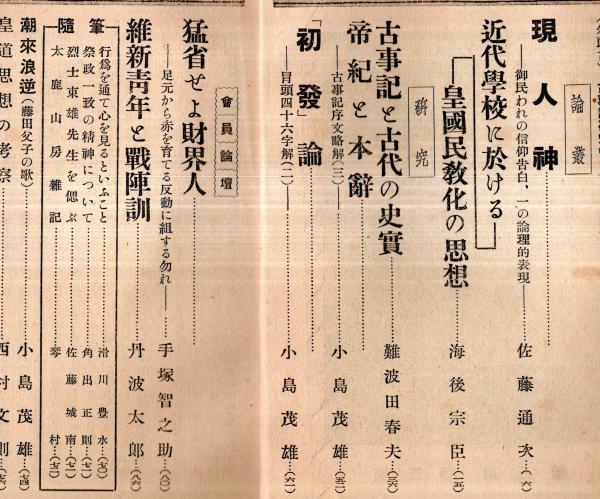 論叢
現人神
――御民われの信仰告白、一の論理的表現――………佐藤通次…(六)
近代學校に於ける
皇國民教化の思想………海後宗臣…(一五)
研究
古事記と古代の史實………難波田春夫…(三六)
帝紀と本辭
――古事記序文略解(三)………小島茂雄…(五一)
「初發」論
――冒頭四十六字解(二)………小島茂雄…(六一)
會員論壇
猛省せよ財界人
――足元から赤を育てる反動に組する勿れ………手塚智之助…(八〇)
維新青年と戰陣訓………丹波太郎…(八六)
隨筆
行爲を通て心を見るといふこと………滑川豊水…(七〇)
祭政一致の精神について………角出正則…(七一)
烈士東雄先生を偲ぶ………佐藤城南…(七一)
太鹿山房雜記………琴村…(七二)
潮來浪逆(藤田父子の歌)………小島茂雄…(七四)
皇道思想の考察………西村文則